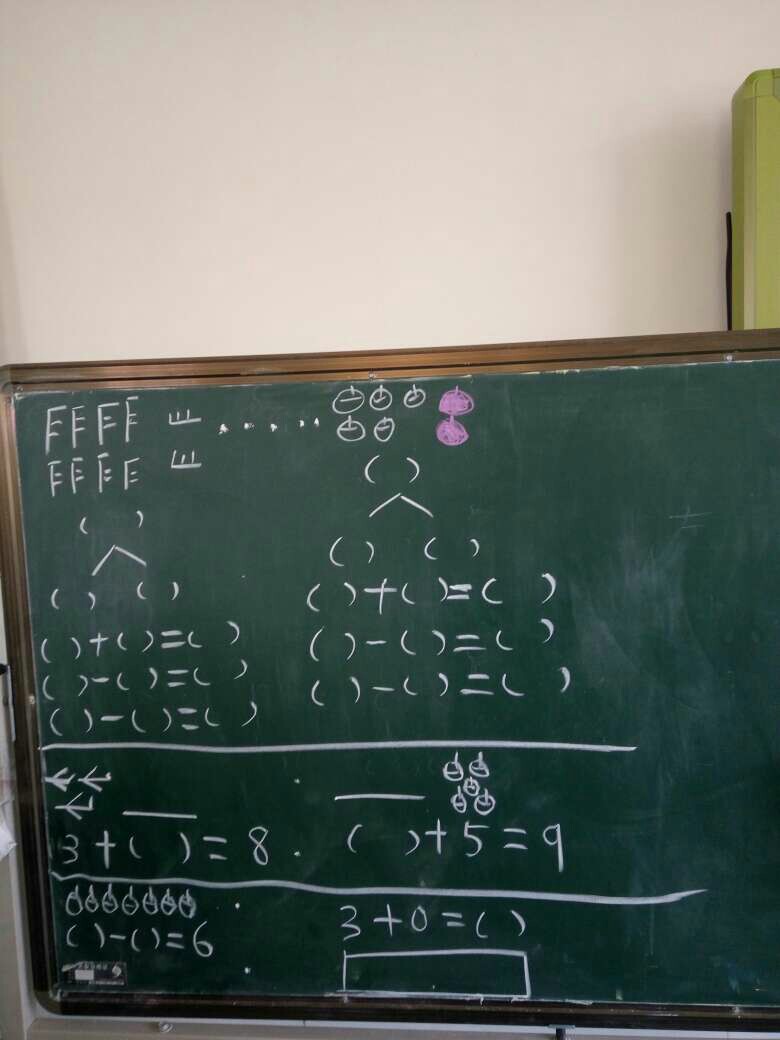 (  )
(  )
(  ) (  )
(  ) (  )
(  )+(  )=(  )
(  )+(  )=(  )
(  )-(  )=(  )
(  )-(  )=(  )
(  )-(  )=(  )
(  )-(  )=(  )
3+(  )=8.
(  )+5=9
(  )-(  )=6
3+0=(  )